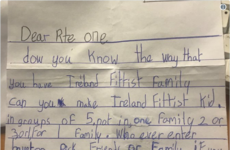 Dear Rte one
dow you know the way that
you have Ireland Fittist Family
Can you make Ireland Fittist Kid.
in groups of 5, not in one Family 2 or
3 or 1 Family. Who ever enter
out Family if